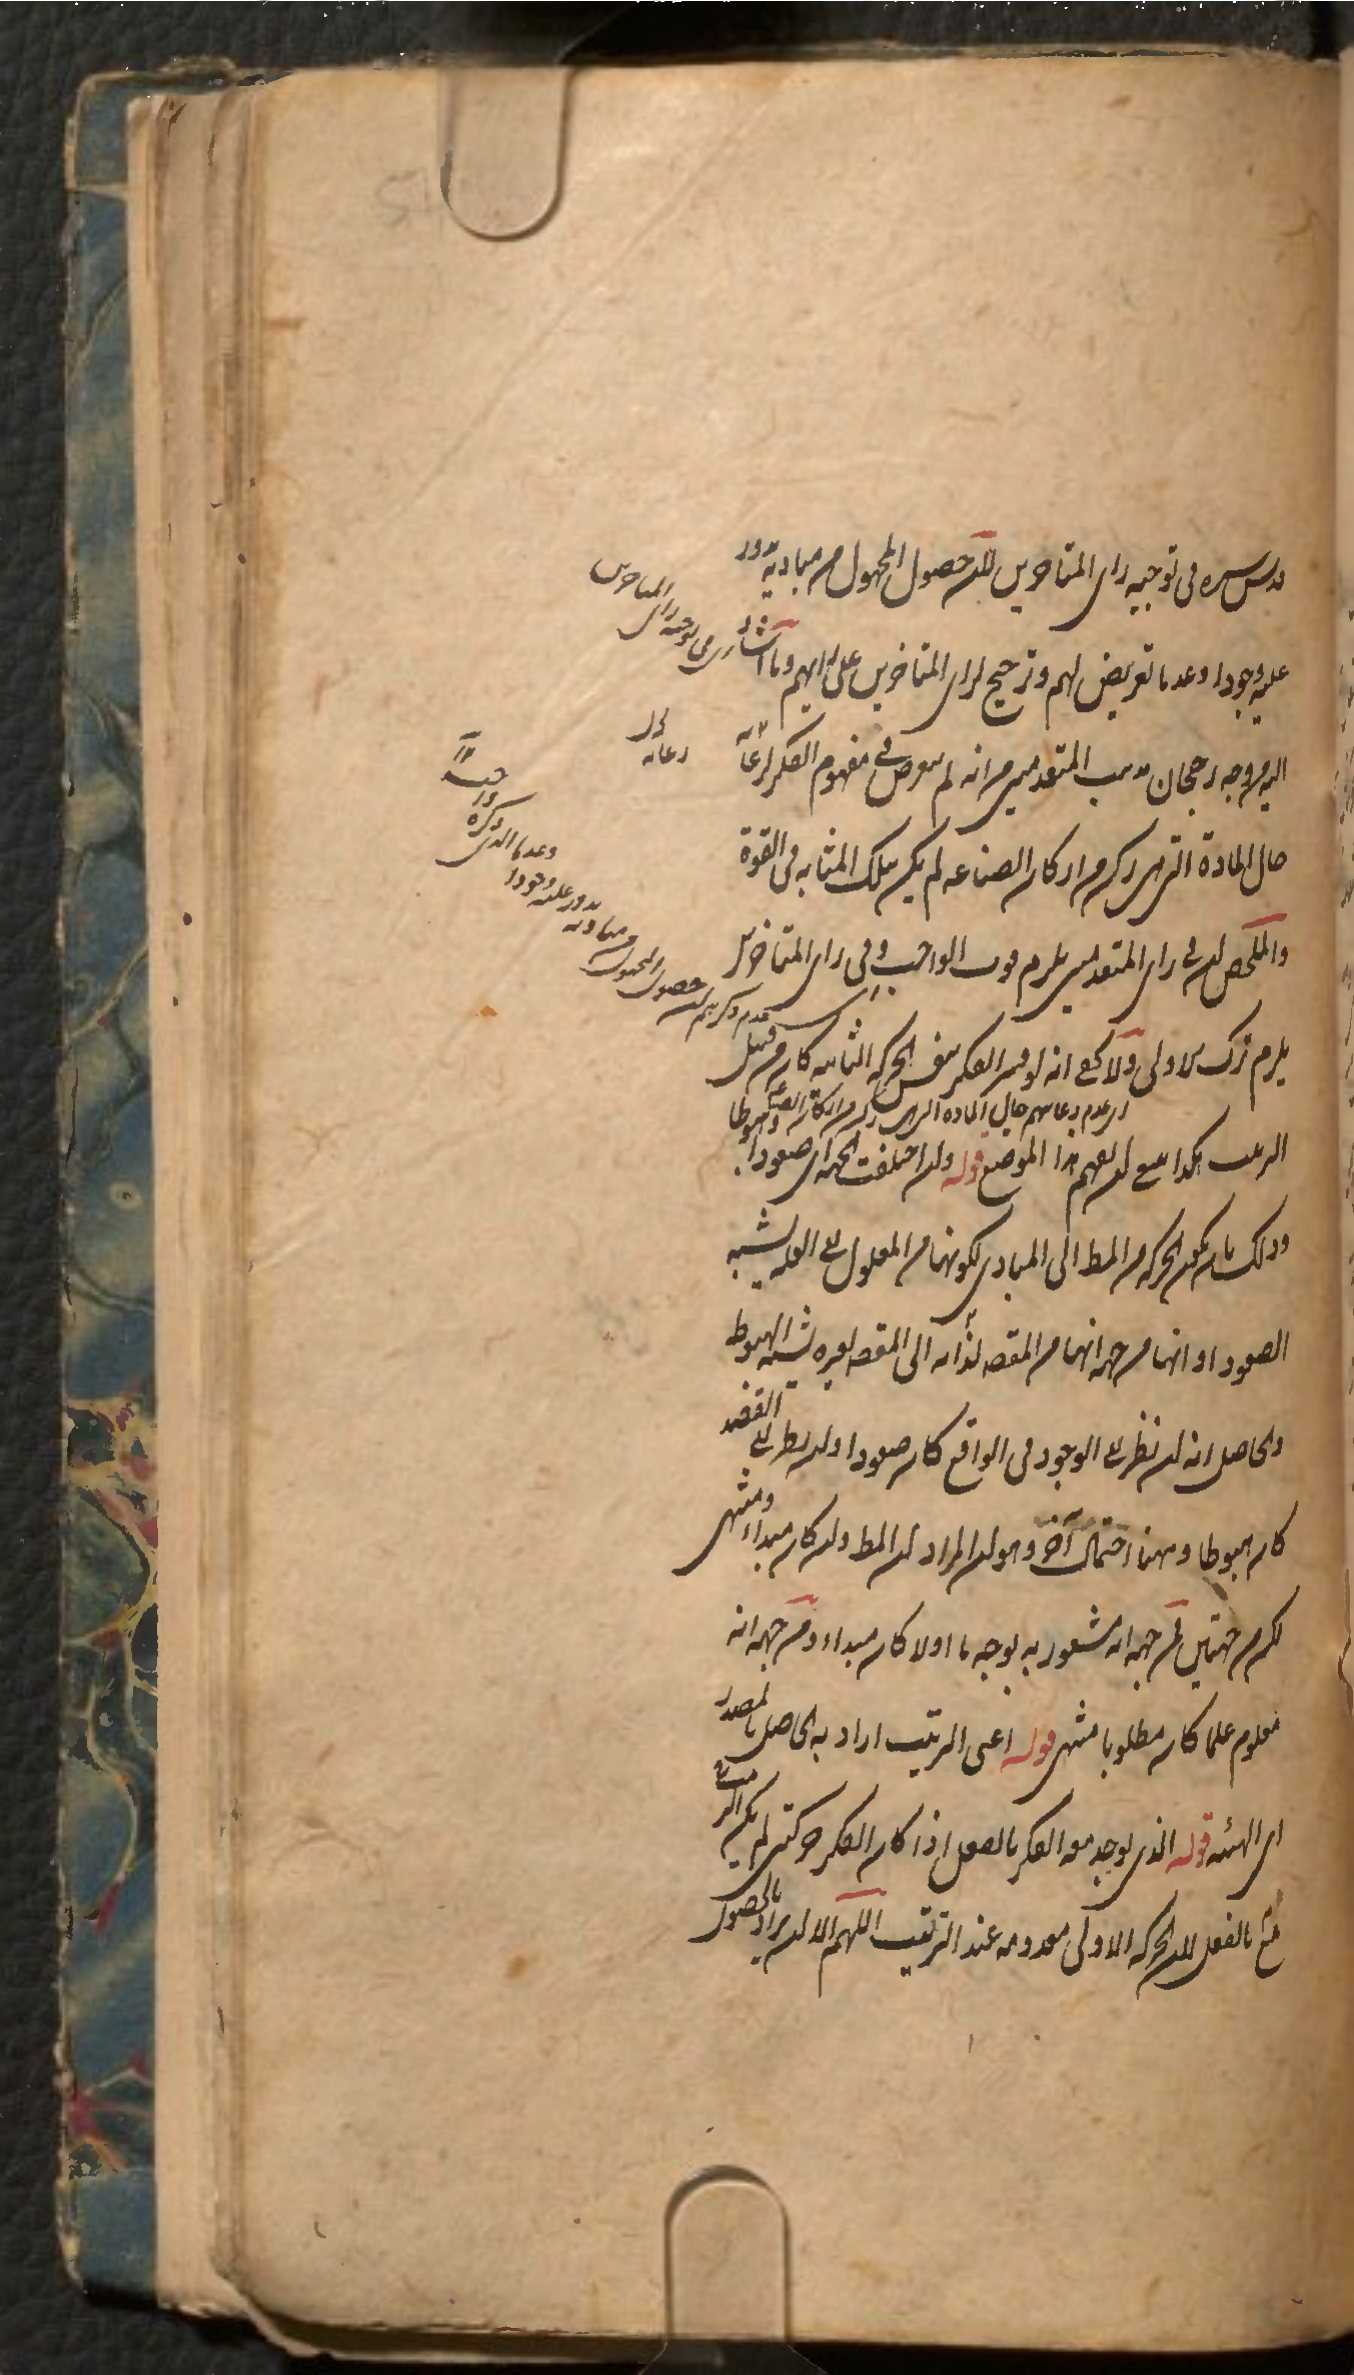 قدس سره فى توجيه راى المتاخرين لان حصول المجهول من مباديه يدور
عليه وجودا وعدما تعريض لهم وترجيح لراى المتاخرين على رايهم وما اشار
اليه من وجه رجحان مذهب المتقدمين من انه لم يتعرض فى مفهوم الفكر لرعاية
حال المادة التى هى ركن من اركان الصناعه لم يكن بتلك المثابه فى القوة
والملخص ان فى راى المتقدمين يلزم فوت الواجب وفى راى المتاخرين
يلزم ترك الاولى ولا يخفى انه لو فسر الفكر بنفس الحركه الثانيه كان من قبيل
الترتيب هكذا ينبغى ان يفهم هذا الموضع قوله وان اختلفت الجهه اى صعودا وهبوطا
وذلك بان يكون الحركه من المط الى المبادى لكونها من المعلول الى العله يشبه
الصعود او انها من جهه انها من المقصد لذاته الى المقصد لغيره يشبه الهبوط
والحاصل انه ان نظر الى الوجود فى الواقع كان صعودا وان نظر الى القصد
كان هبوطا وههنا احتمال آخر وهو ان المراد ان المط وان كان مبداء ومنتهى
لكن من جهتين فمن جهه انه مشعور به بوجه ما اولا كان مبداء ومن جهه انه
معلوم علما كان مطلوبا منتهى قوله اعنى الترتيب اراد به الحاصل بالمصدر
اى الهيئه قوله الذى يوجد معه الفكر بالفعل اذا كان الفكر حركتين لم يكن الترتيب
بالفعل لان الحركه الاولى معدومه عند الترتيب اللهم الا ان يراد بالحصول
اى فى توجيه راى المتاخرين
اى رعايه
قدس سره ان حصول المجهول من مباديه يدور عليه وجودا
وعدما الذى ذكره
اى عدم رعايتهم حال الماده التى هى ركن من اركان الصناعه